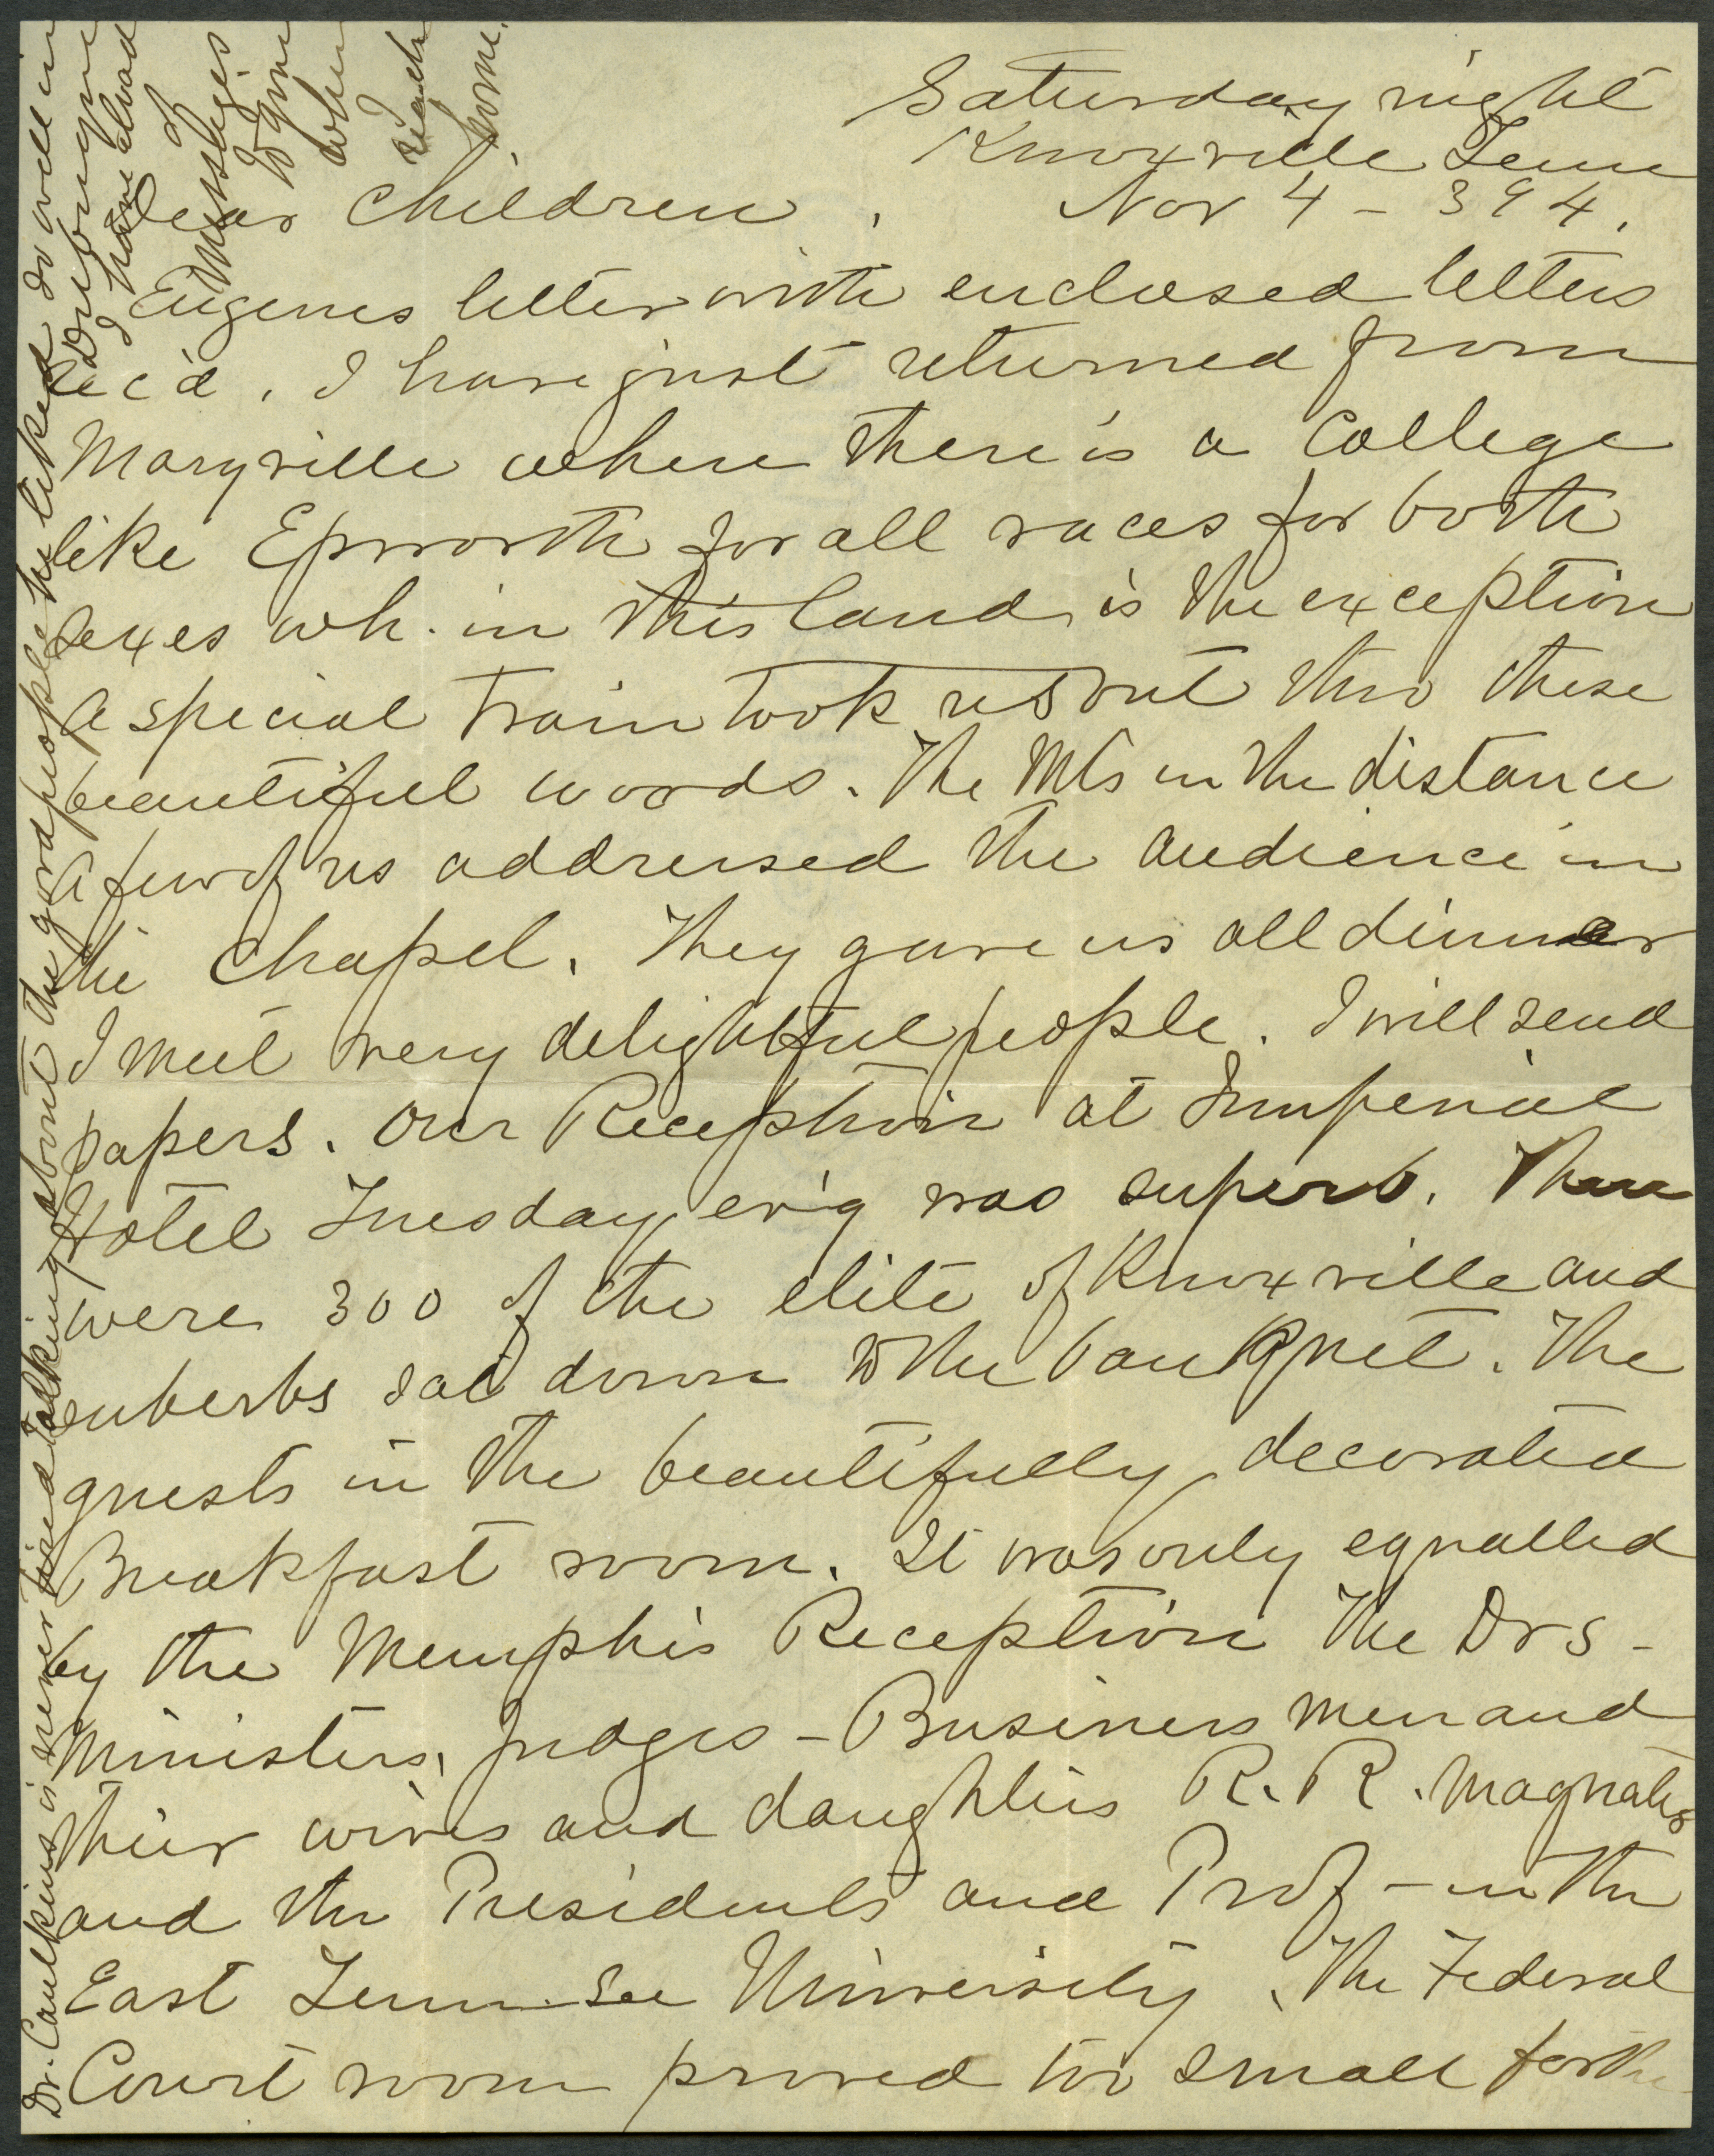 Saturday night
Knoxville Tenn
Nov 4 - 394.
Dear Children,
Eugenes letter with enclosed letters
rec'd. I have just returned from
Maryville where there is a College
like Epworth for all races for both
sexes wh. in this land is the exception
a special train took us out thro these
beautiful woods. The Mts in the distance
A few of us addressed the audience in
the Chapel. They gave us all dinner
I meet very delightful people. I will send
papers. Our Reception at Imperial
Hotel Tuesday ev'g was superb. There
were 300 of the elite of Knoxville and
suberbs sat down to the banquet. The
guests in the beautifully decorated
Breakfast room. It was only equalled
by the Memphis Reception The Drs -
Ministers, Judges - Business men and
their wives and daughters R. R. Magnates
and the Presidents and Prof - in the
East Tennessee University. The Federal
Court room proved too small for the
Dr. Caulkins is never tired talking about the good people he liked so well in
I have
of
Messages
to give
when
I
reach
home.